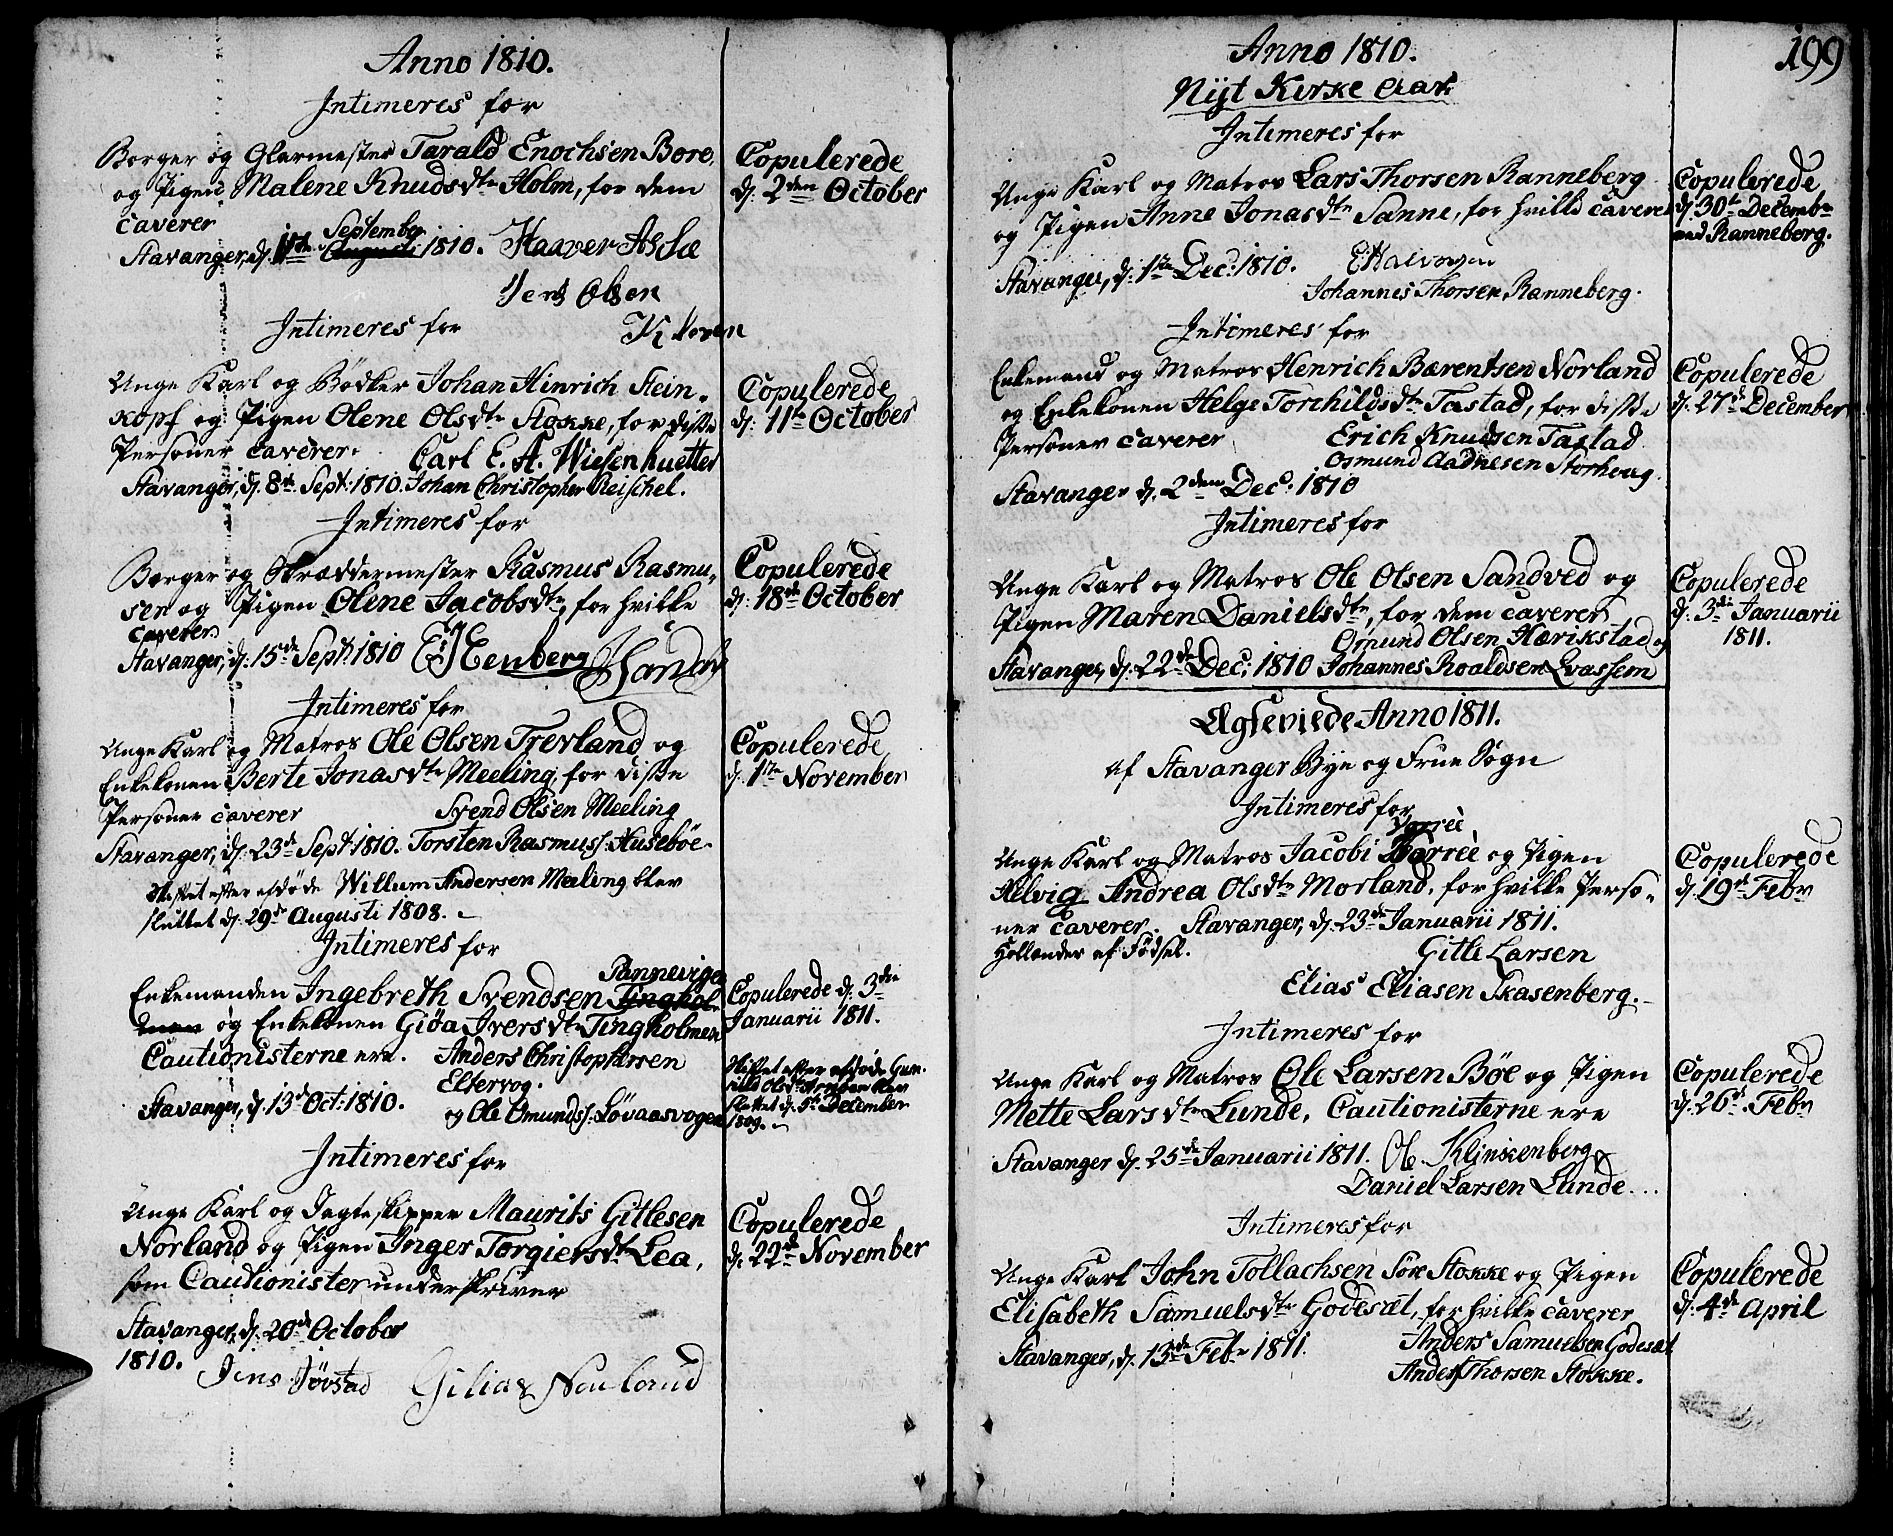 Anno 1810.
Intimeres for
Borger og Glarmester Tarald Enochsen Bore,
og Pigen Malene Knudsdtr Holm, for dem
caverer
Stavanger, d. September
Augusti 1810. Haaver Asse
Jens Olsen
Copulerede
d. 2den October
Intimeres for
Unge Karl og Bødker Johan Hinrich Stein-
kopf og Pigen Olene Olsdtr Stokke, for disse
Personer caverer. Carl E. A. Wiesenhuetter
Stavanger, d. 8de Sept. 1810. Johan Christopher Reischel.
Copulerede
d. 11te October
Intimeres for
Borger og Skræddermester Rasmus Rasmu-
sen og Pigen Olene Jacobsdtr, for hvilke
caverer
Stavanger, d. 15de Sept. 1810
Copulerede
d. 18de October
Intimeres for
Unge Karl og Matros Ole Olsen Trevland og
Enkekonen Berte Jonasdtr Meeling, for disse
Personer caverer Svend Olsen Meeling
Stavanger, d. 23de Sept. 1810. Torsten Rasmuss. Husebøe.
Skiftet efter afdøde Willum Andersen Meeling blev
sluttet d. 29de Augusti 1808.
Copulerede
d. 1ste November
Intimeres for
Tannevigen
Enkemanden Ingebreth Svendsen Tinghol-
men og Enkekonen Giøa Iversdtr Tingholmen
Cautionisterne ere. Anders Christophersen
Eltervog.
Stavanger, d. 13de Oct. 1810. og Ole Omundss. Løvaasvogen
Copulerede d. 3die
Januarii 1811.
Skiftet efter afdøde Gun-
sluttet d. 5te December
1809.
Intimeres for
Unge Karl og Jagteskipper Maurits Gitlesen
Norland og Pigen Inger Torgiersdtr Lea,
som Cautionister underskriver
Stavanger, d. 20de October
1810.
Jens Jøvstad Gitlas Noulaud
Copulerede
d. 22de November
199
Anno 1810.
Nyt Kirke Aar
Intimeres for
Unge Karl og Matros Lars Thorsen Ranneberg
og Pigen Anne Jonasdtr Sanne, for hvilke caverer
Stavanger, d. 1ste Dec. 1810. E Halvorsen
Johannes Thorsen Ranneberg.
Copulerede
d. 30te Decembr
ved Ranneberg.
Intimeres for
Enkemand og Matros Henrich Bærentsen Norland
og Enkekonen Helge Torchildsdtr Tastad, for disse
Personer caverer Erich Knudsen Tastad
Osmund Aadnesen Storhoug.
Stavanger d. 2den Dec. 1810
Copulerede
d. 27de December
Intimeres for
Unge Karl og Matros Ole Olsen Sandved og
Pigen Maren Danielsdtr, for dem caverer
Osmund Olsen Harikstad og
Stavanger, d. 22de Dec. 1810 Johannes Roaldsen Qvassem
Copulerede
d. 3die Januarii
1811.
Ægteviede Anno 1811.
af Stavanger Bye og Frue Sogn
Intimeres for
Unge Karl og Matros Jacobi og Pigen
Helvig Andrea Olsdtr Morland, for hvilke Perso-
ner caverer. Stavanger, d. 23de Januarii 1811.
Hollænder af Fødsel. Gitle Larsen
Elias Eliasen Skasenberg.
Copulerede
d. 19de Febr
Intimeres for
Unge Karl og Matros Ole Larsen Bøe og Pigen
Mette Larsdtr Lunde, Cautionisterne ere
Stavanger d. 25de Januarii 1811. Ol. Klinkenberg
Daniel Larsen Lunde...
Copulerede
d. 26de Febr
Intimeres for
Unge Karl John Tollachsen Søre Stokke og Pigen
Elisabeth Samuelsdtr Godesæt, for hvilke caverer
Anders Samuelsen Godesæt
Stavanger, d. 13de Febr 1811.
Anders Thorsen Stokke.
Copulerede
d. 4de April